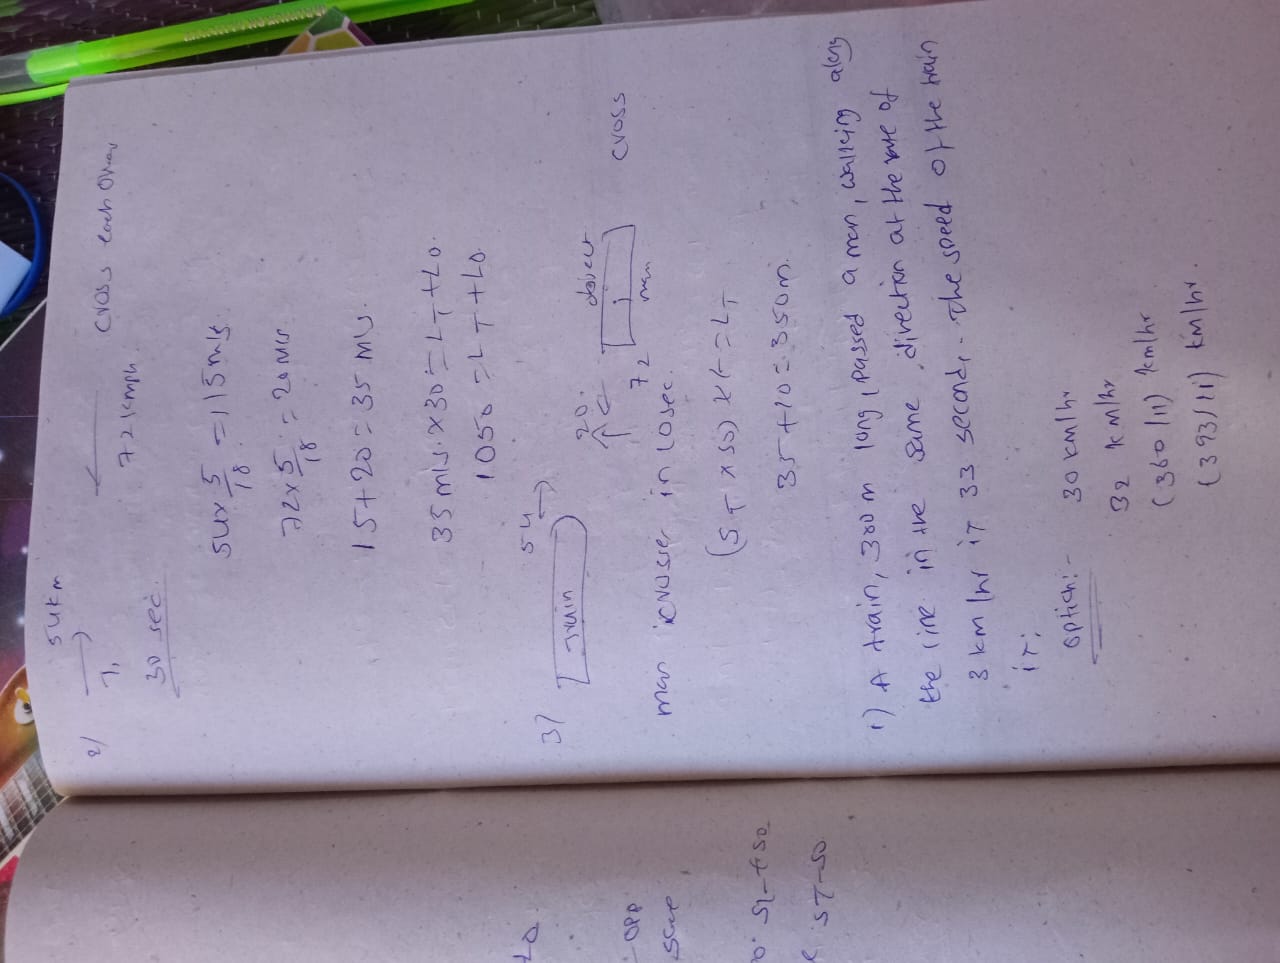 2) 54km
T1
72 kmph
cross each other
30 sec.
54 x 5/18 = 15 m/s
72 x 5/18 = 20 m/s
15 + 20 = 35 m/s.
35 m/s. x 30 = LT + LO.
1050 = LT + LO.
3) train 54 20. 72 object man cross
man crosses in 10 sec.
(ST x SO) x t = LT
35 + 10 = 350 m.
1) A train, 300 m long, passed a man, walking along
the line in the same direction at the rate of
3 km/hr it 33 seconds. The speed of the train
it.
option:- 30 km/hr
32 km/hr
(360/11) km/hr
(393/11) km/hr.
LO.
- OPP
same
ST + SO
ST - SO